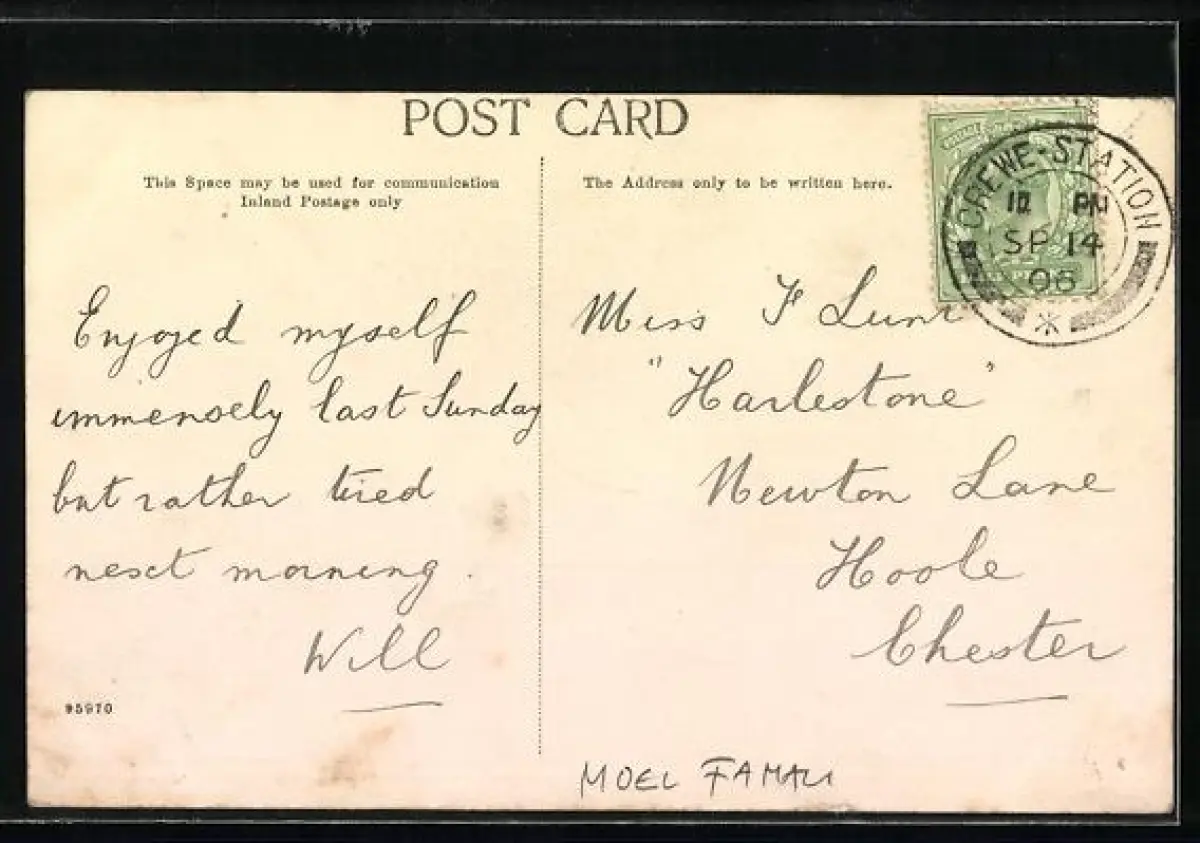 POST CARD
This Space may be used for communication
Inland Postage only
The Address only to be written here.
CREWE-STATION
PM
SP 14
06
Enjoyed myself
immensely last Sunday
but rather tired
next morning.
Will
95970
Miss F Lunt
"Harlestone"
Newton Lane
Hoole
Chester
MOEL FAMAU